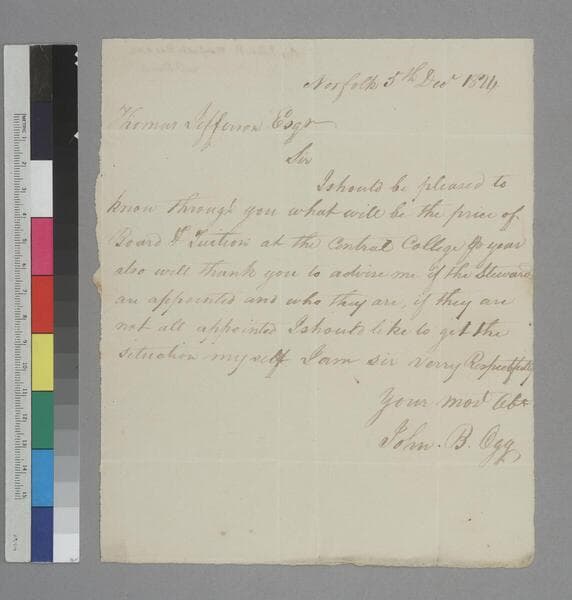 Norfolk 5th Decr 1824
Thomas Jefferson Esqr
Sir
I should be pleased to
know through you what will be the price of
Board & Tuition at the Central College ⅌ year
also will thank you to advise me if the Stewards
are appointed and who they are, if they are
not all appointed I should like to get the
situation myself I am sir verry Respectfully
Your Mod Obt
John. B. Ogg